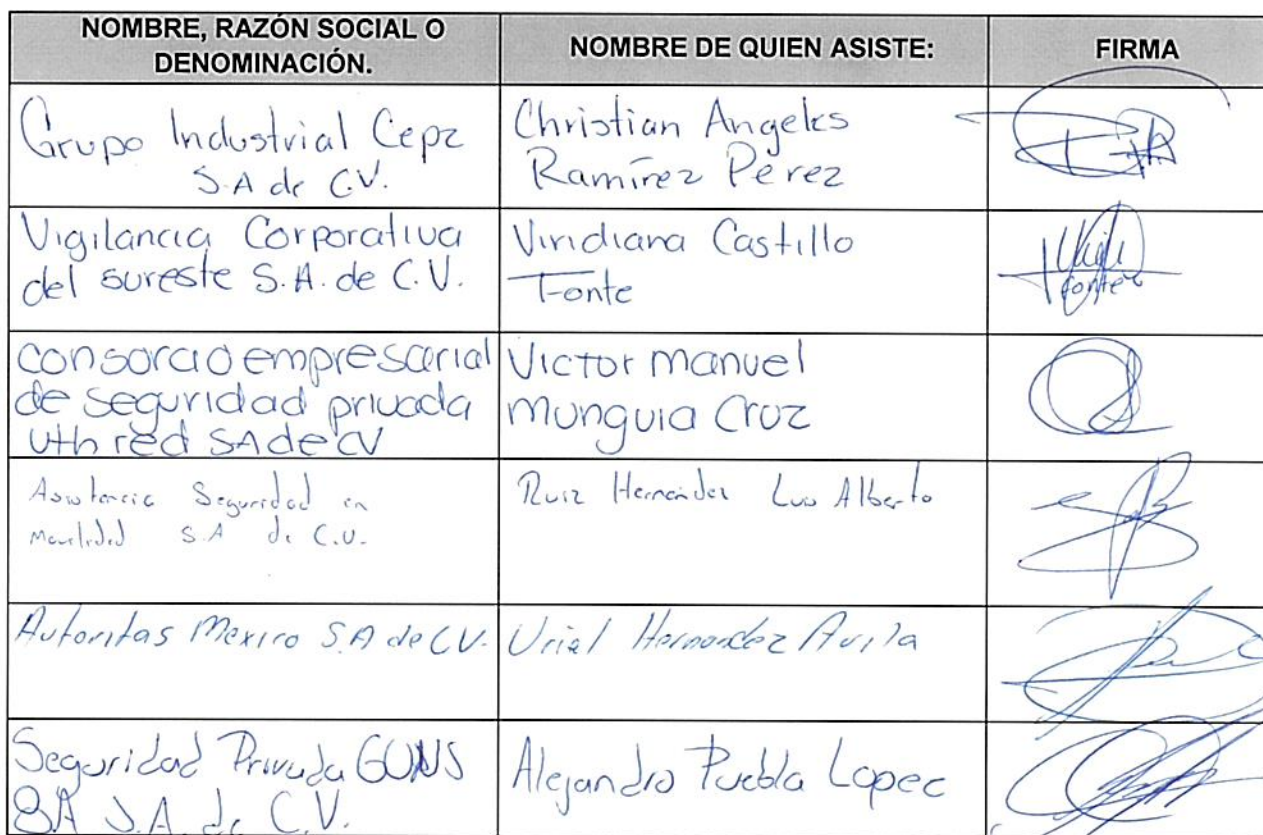 NOMBRE, RAZÓN SOCIAL O
DENOMINACIÓN.
NOMBRE DE QUIEN ASISTE:
FIRMA
Grupo Industrial Cepz
S.A de C.V.
Christian Angeles
Ramírez Perez
Vigilancia Corporativa
del sureste S.A. de C.V.
Viridiana Castillo
Fonte
consorcio empresarial
de seguridad privada
uth red SA de CV
Victor manuel
munguia Cruz
Asistencia Seguridad en
S.A de C.V.
Ruiz Hernández Luis Alberto
Autoritas Mexico S.A de CV.
Uriel Hernandez Avila
Seguridad Privada GUNS
S.A. de C.V.
Alejandro Puebla Lopec